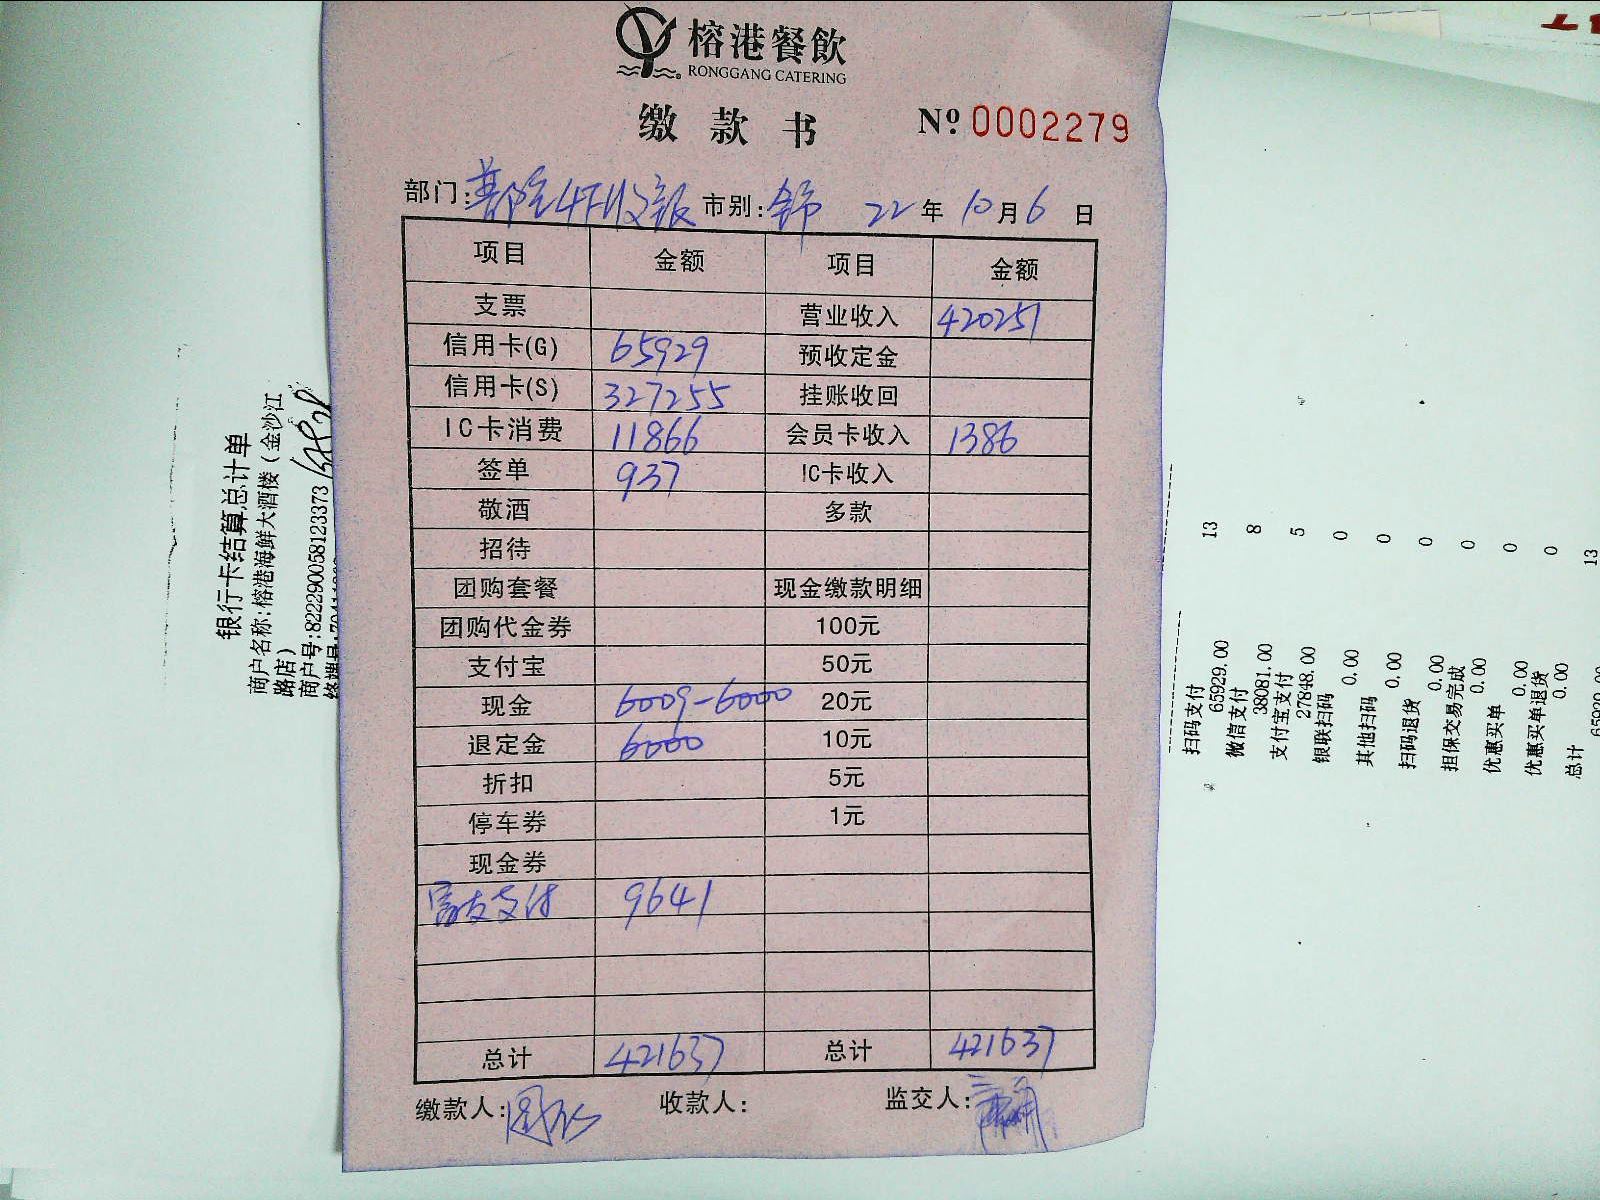 榕港餐飲
RONGGANG CATERING
缴款书 Nº: 0002279
部门: 市别:全市 22年10月6日
项目 金额 项目 金额
支票 营业收入 420251
信用卡(G) 65929 预收定金
信用卡(S) 327255 挂账收回
IC卡消费 11866 会员卡收入 1386
签单 937 IC卡收入
敬酒 多款
招待
团购套餐 现金缴款明细
团购代金券 100元
支付宝 50元
现金 6009-6000 20元
退定金 6000 10元
折扣 5元
停车券 1元
现金券
富友支付 9641
总计 421637 总计 421637
缴款人: 收款人: 监交人:
银行卡结算总计单
商户名称:榕港海鲜大酒楼(金沙江
路店)
商户号:822290058123373
扫码支付 13
65929.00
微信支付 8
38081.00
支付宝支付 5
27848.00
银联扫码 0
0.00
其他扫码 0
0.00
扫码退货 0
0.00
担保交易完成 0
0.00
优惠买单 0
0.00
优惠买单退货 0
0.00
总计 13